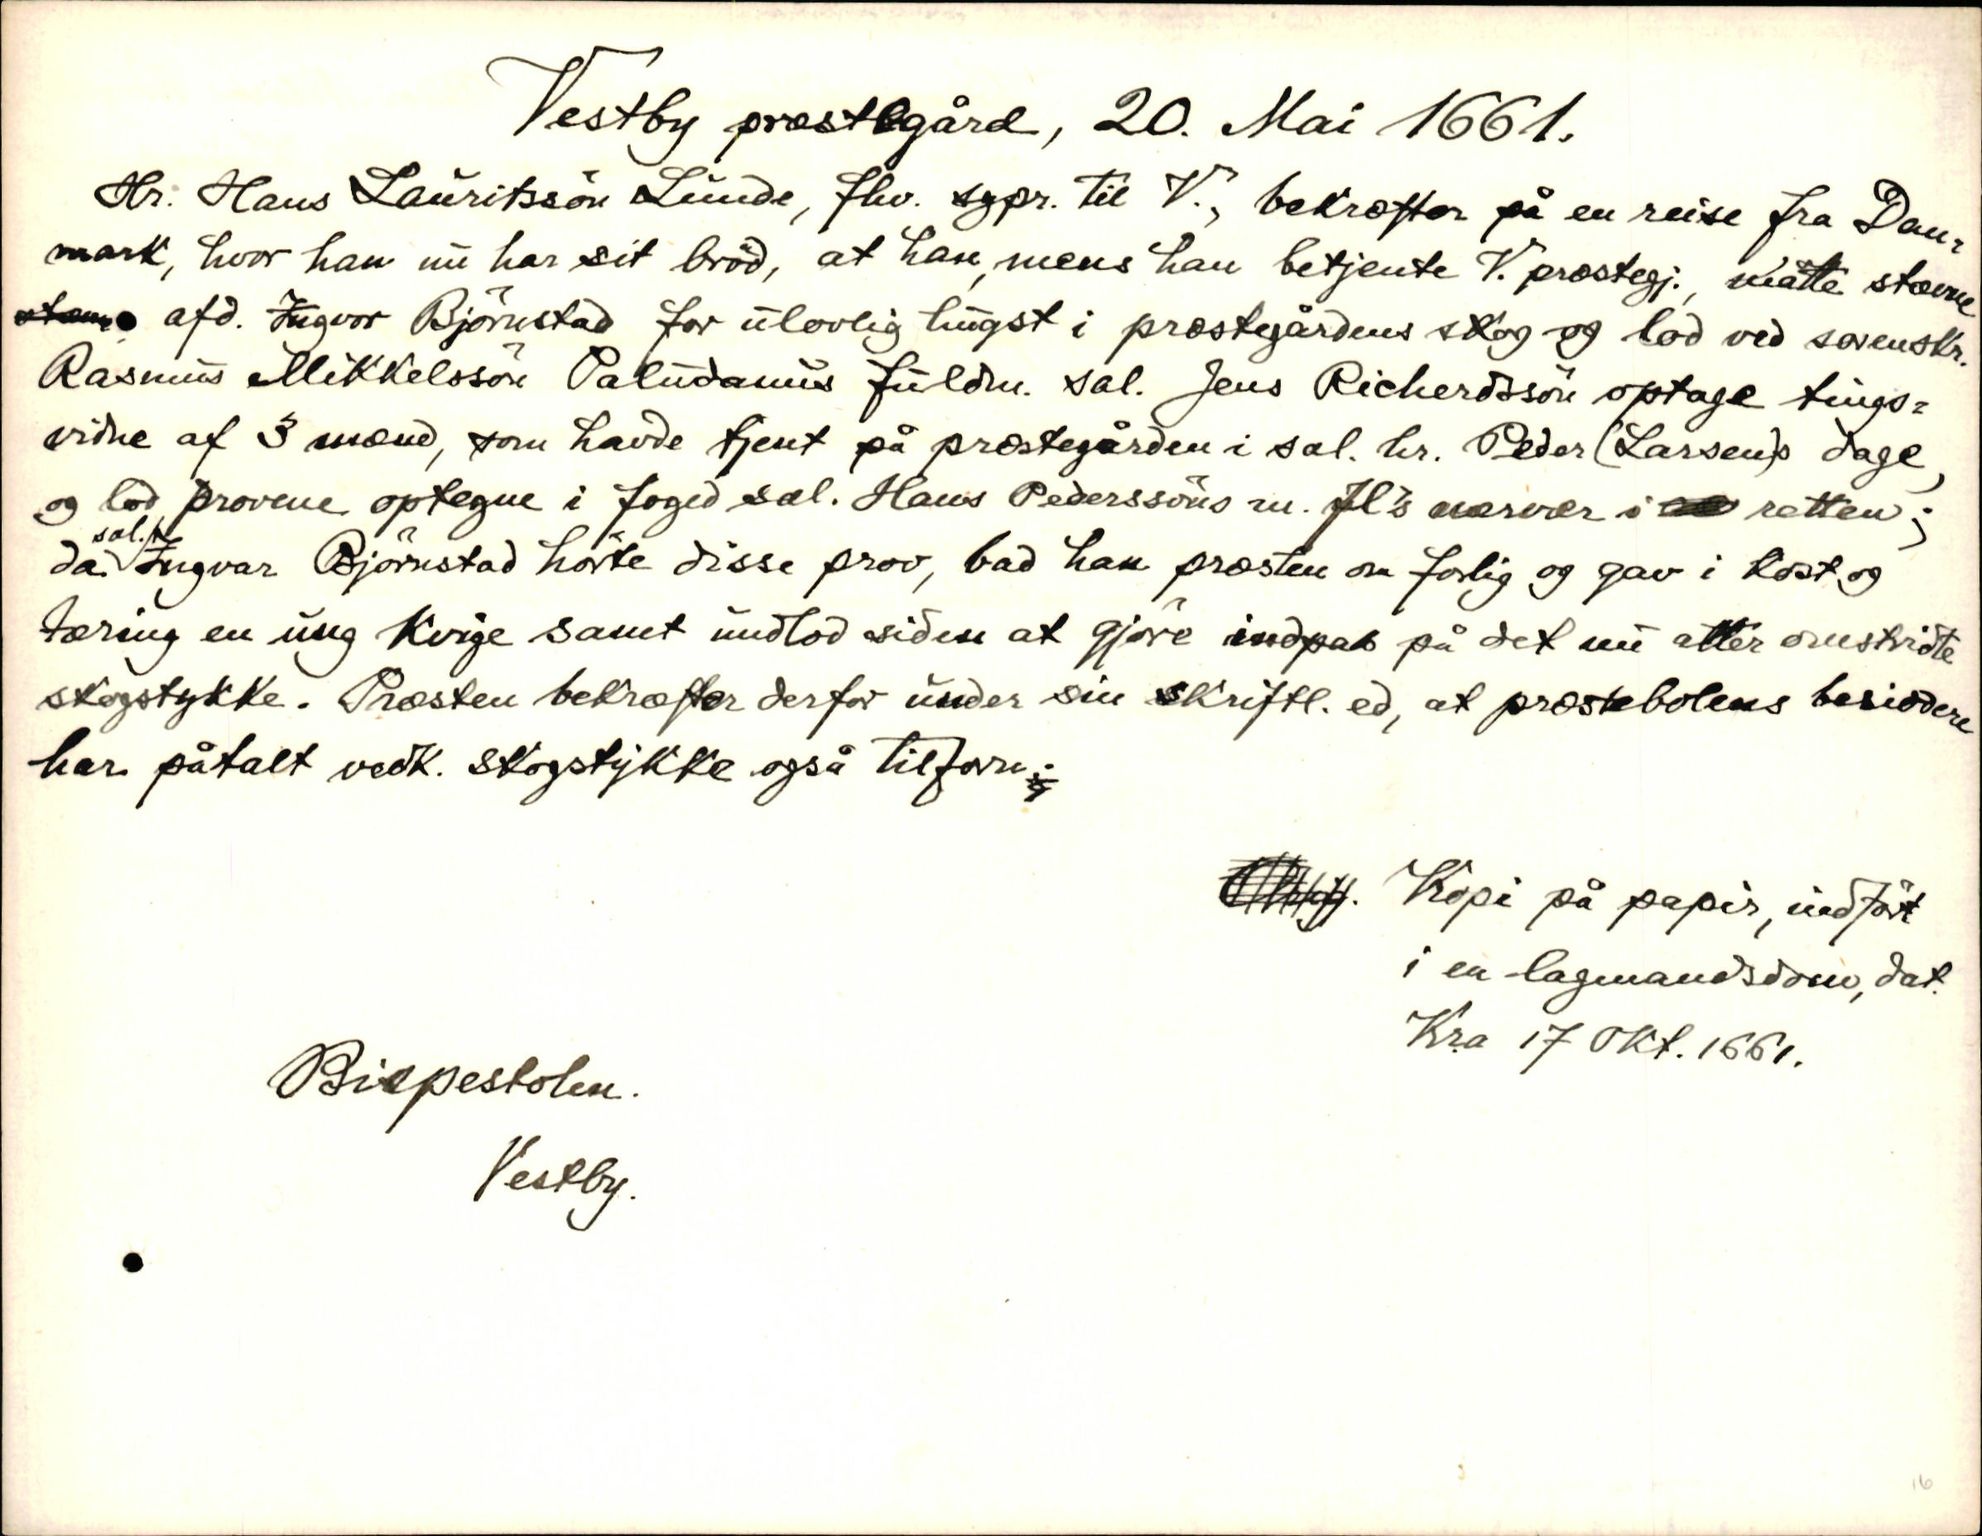 Vestby præstegård, 20. Mai 1661.
Hr. Hans Lauritssön Lunde, fhv. sgpr. til V., bekræfter på en reise fra Dan-
mark, hvor han nu har sit bröd, at han, mens han betjente V. præstegj., måtte stævne
afd. Ingvor Björnstad for ulovlig hugst i præstegårdens skog og lod ved sorenskr.
Rasmus Mikkelssön Paludanus fuldm. sal. Jens Richerdssön optage tings-
vidne af 3 mænd, som havde tjent på præstegården i sal. hr. Peder (Larsen)s dage,
og lod provene optegne i foged sal. Hans Pederssöns m. fl's nærvær i retten;
da sal. Ingvar Björnstad hörte disse prov, bad han præsten om forlig og gav i kost og
tæring en ung kvige samt undlod siden at gjöre indpas på det nu atter omstridte
skogstykke. Præsten bekræfter derfor under sin skriftl. ed, at præstebolens besiddere
har påtalt vedk. skogstykke også tilforn.
Kopi på papir, indfört
i en lagmandsdom, dat.
Kra 17 Okt. 1661.
Bispestolen.
Vestby.
16